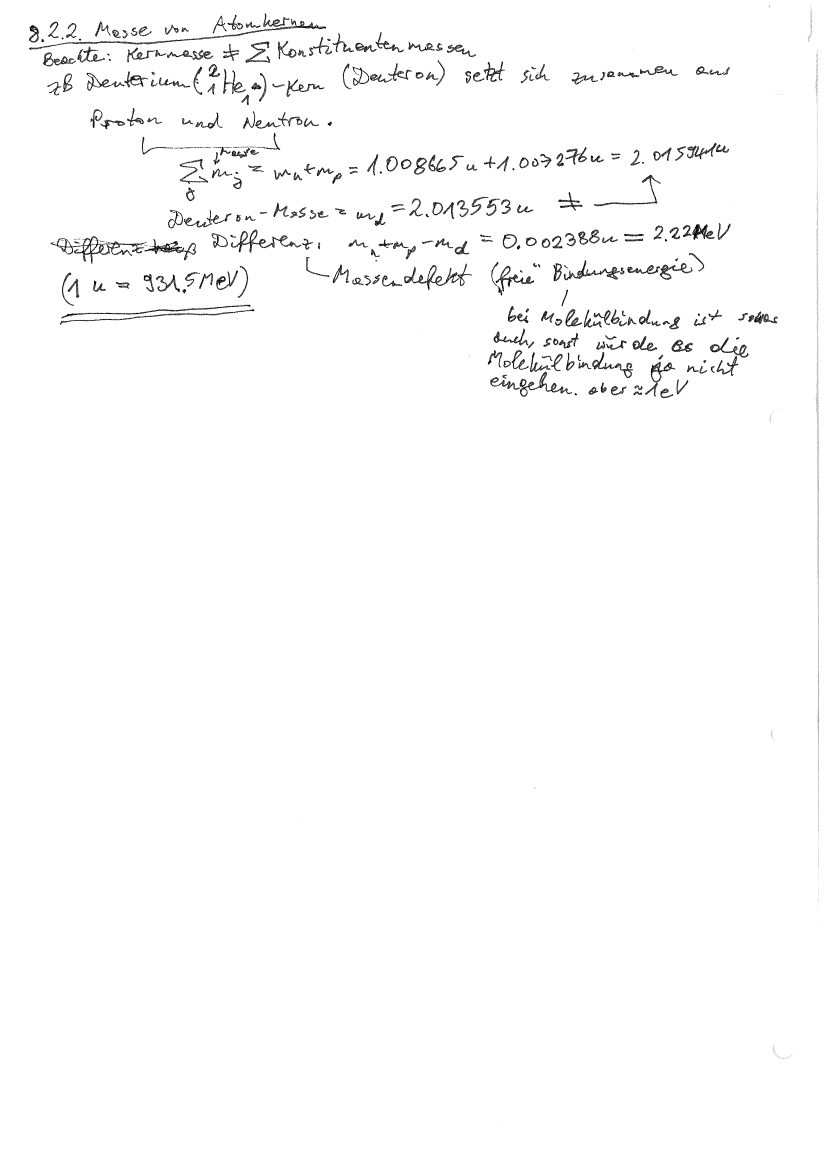 8.2.2. Masse von Atomkernen
Beachte: Kernmasse ≠ Σ Konstituentenmassen
zB Deuterium (²₁He₁)-Kern (Deuteron) setzt sich zusammen aus
Proton und Neutron.
↓Masse
Σ_j m_j = m_n + m_p = 1.008665u + 1.007276u = 2.015941u
Deuteron-Masse = m_d = 2.013553u ≠
Differenz Differenz: m_n + m_p - m_d = 0.002388u = 2.22MeV
Massendefekt („freie" Bindungsenergie)
(1 u = 931.5 MeV)
bei Molekülbindung ist
auch, sonst würde es die
Molekülbindung ja nicht
eingehen. aber ≈ 1eV